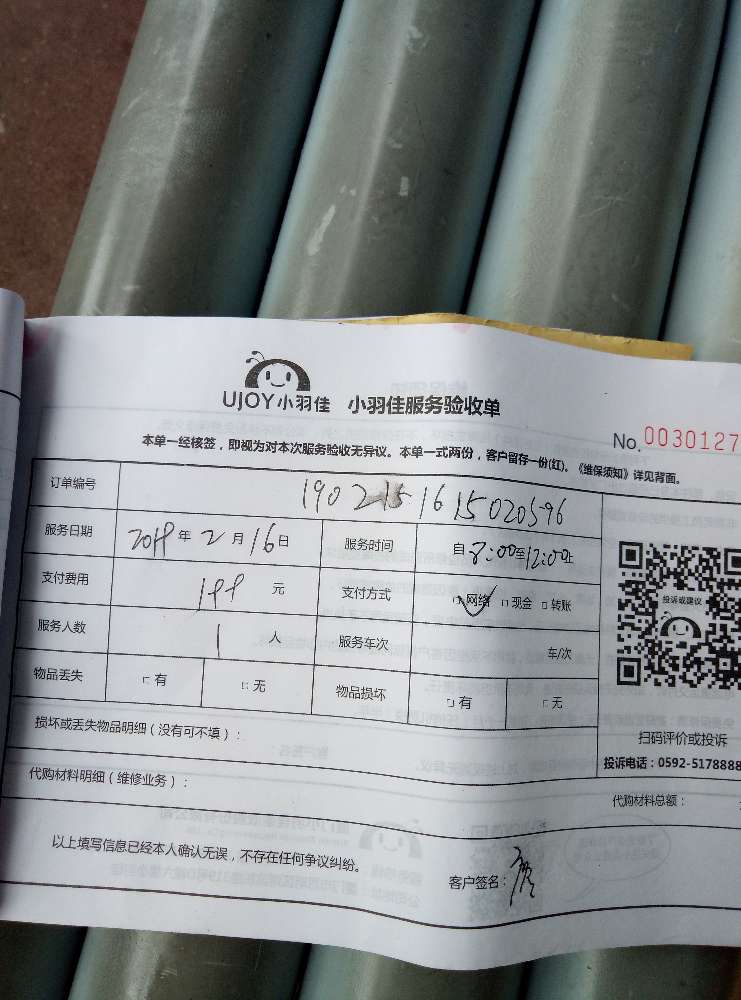 UJOY小羽佳 小羽佳服务验收单
No. 0030127
本单一经核签，即视为对本次服务验收无异议。本单一式两份，客户留存一份(红)。《维保须知》详见背面。
订单编号 1902151615020596
服务日期 2019年2月16日 服务时间 自8:00至12:00止
支付费用 199 元 支付方式 网络 现金 转账
投诉或建议
服务人数 1 人 服务车次 车/次
物品丢失 有 无 物品损坏 有 无
损坏或丢失物品明细（没有可不填）：
扫码评价或投诉
投诉电话：0592-5178888
代购材料明细（维修业务）：
代购材料总额：
以上填写信息已经本人确认无误，不存在任何争议纠纷。
客户签名：